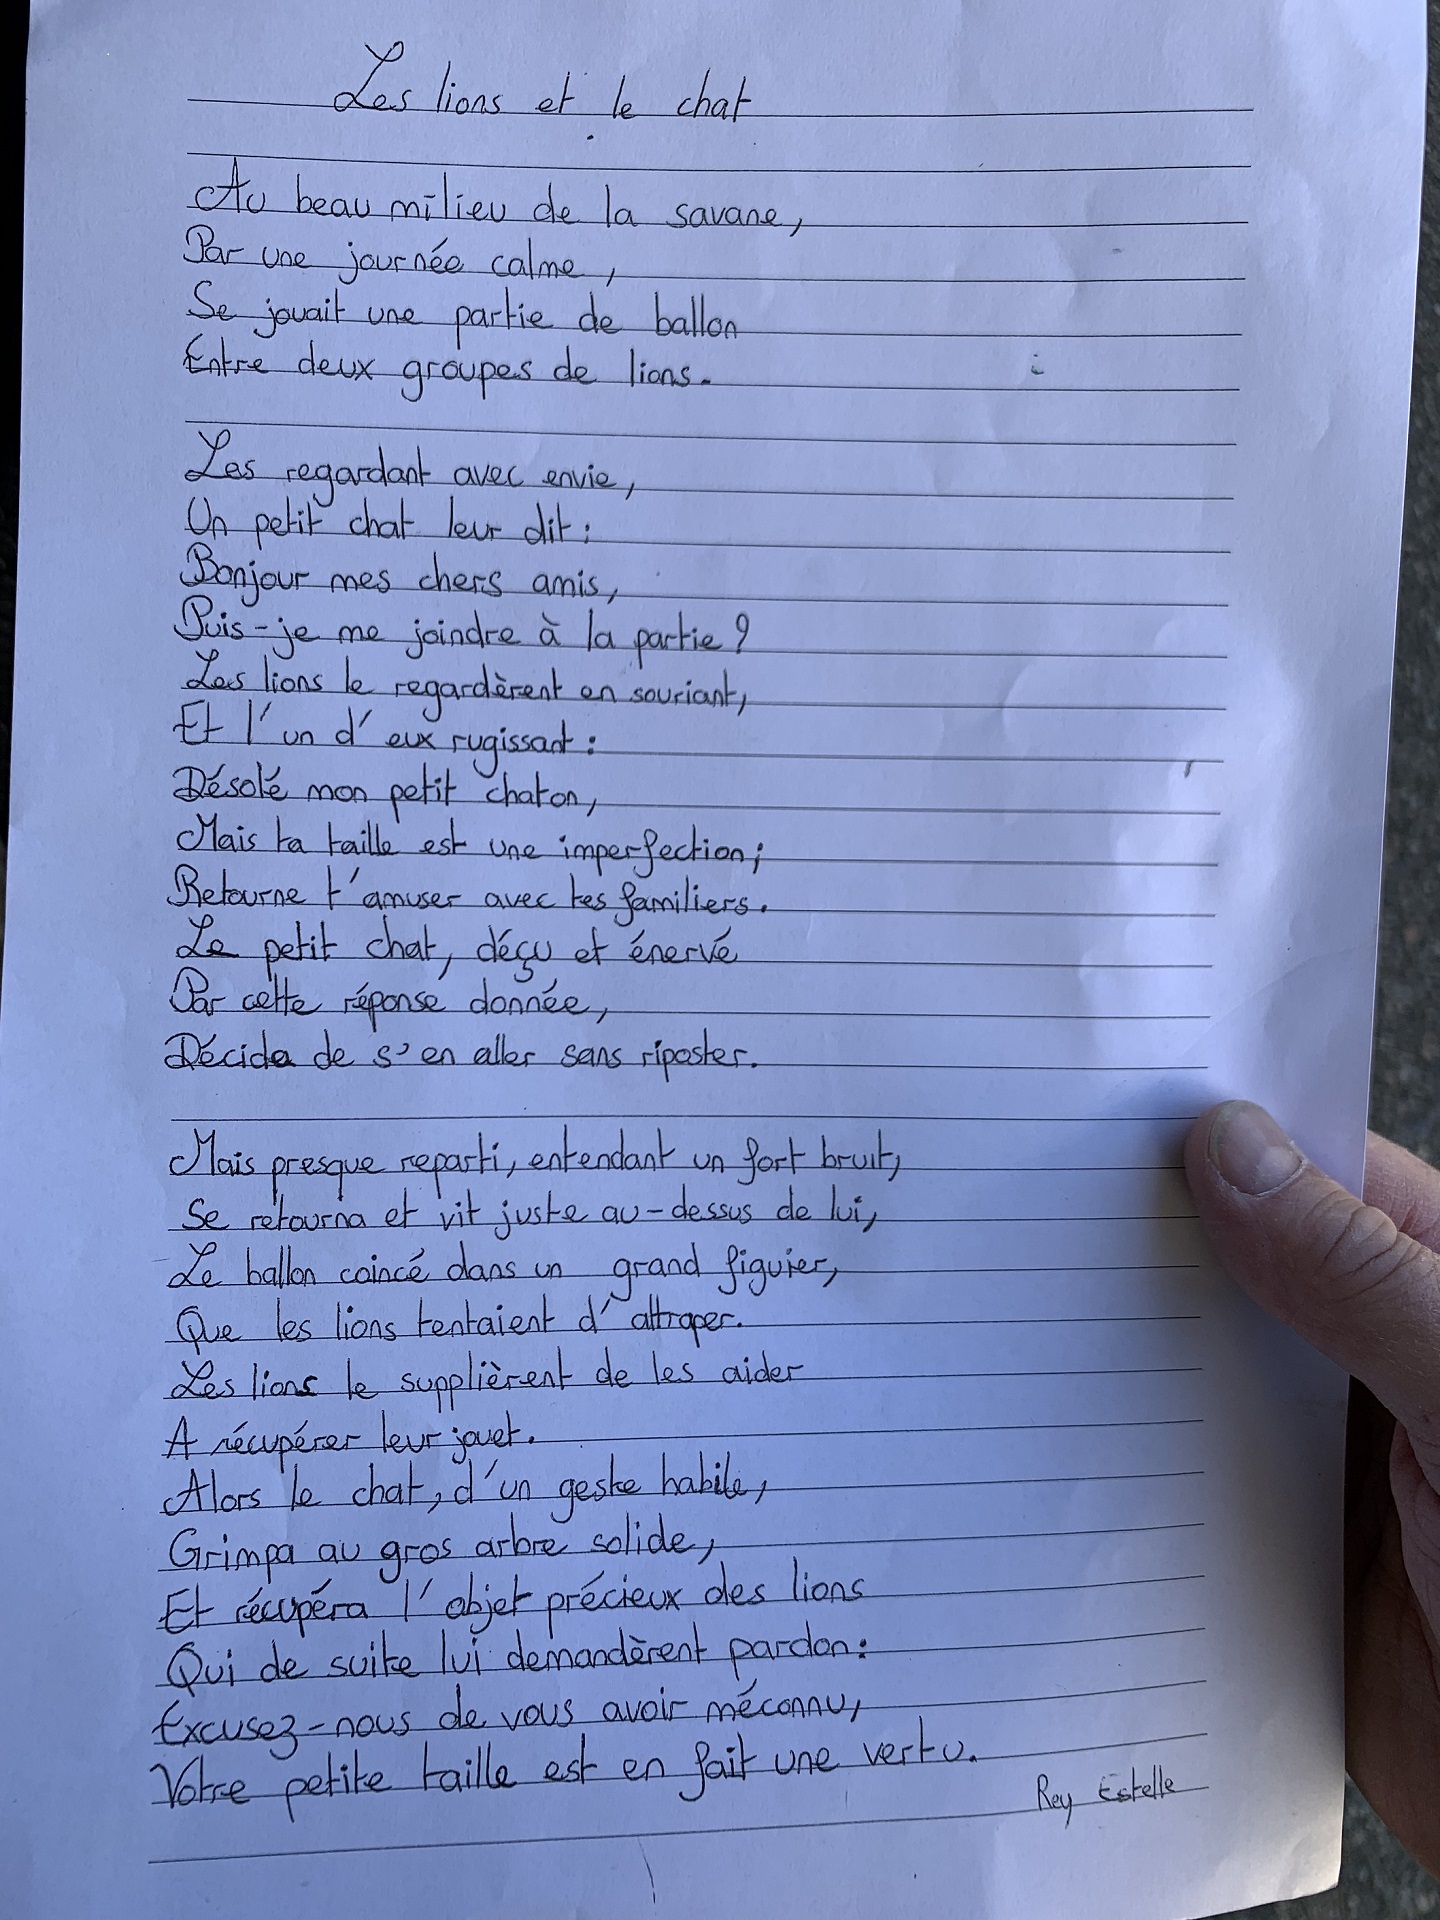 Les lions et le chat
Au beau milieu de la savane,
Par une journée calme,
Se jouait une partie de ballon
Entre deux groupes de lions.
Les regardant avec envie,
Un petit chat leur dit :
Bonjour mes chers amis,
Puis-je me joindre à la partie ?
Les lions le regardèrent en souriant,
Et l'un d'eux rugissant :
Désolé mon petit chaton,
Mais ta taille est une imperfection ;
Retourne t'amuser avec tes familiers.
Le petit chat, déçu et énervé
Par cette réponse donnée,
Décida de s'en aller sans riposter.
Mais presque reparti, entendant un fort bruit,
Se retourna et vit juste au-dessus de lui,
Le ballon coincé dans un grand figuier,
Que les lions tentaient d'attraper.
Les lions le supplièrent de les aider
A récupérer leur jouet.
Alors le chat, d'un geste habile,
Grimpa au gros arbre solide,
Et récupéra l'objet précieux des lions
Qui de suite lui demandèrent pardon :
Excusez-nous de vous avoir méconnu,
Votre petite taille est en fait une vertu.
Rey Estelle